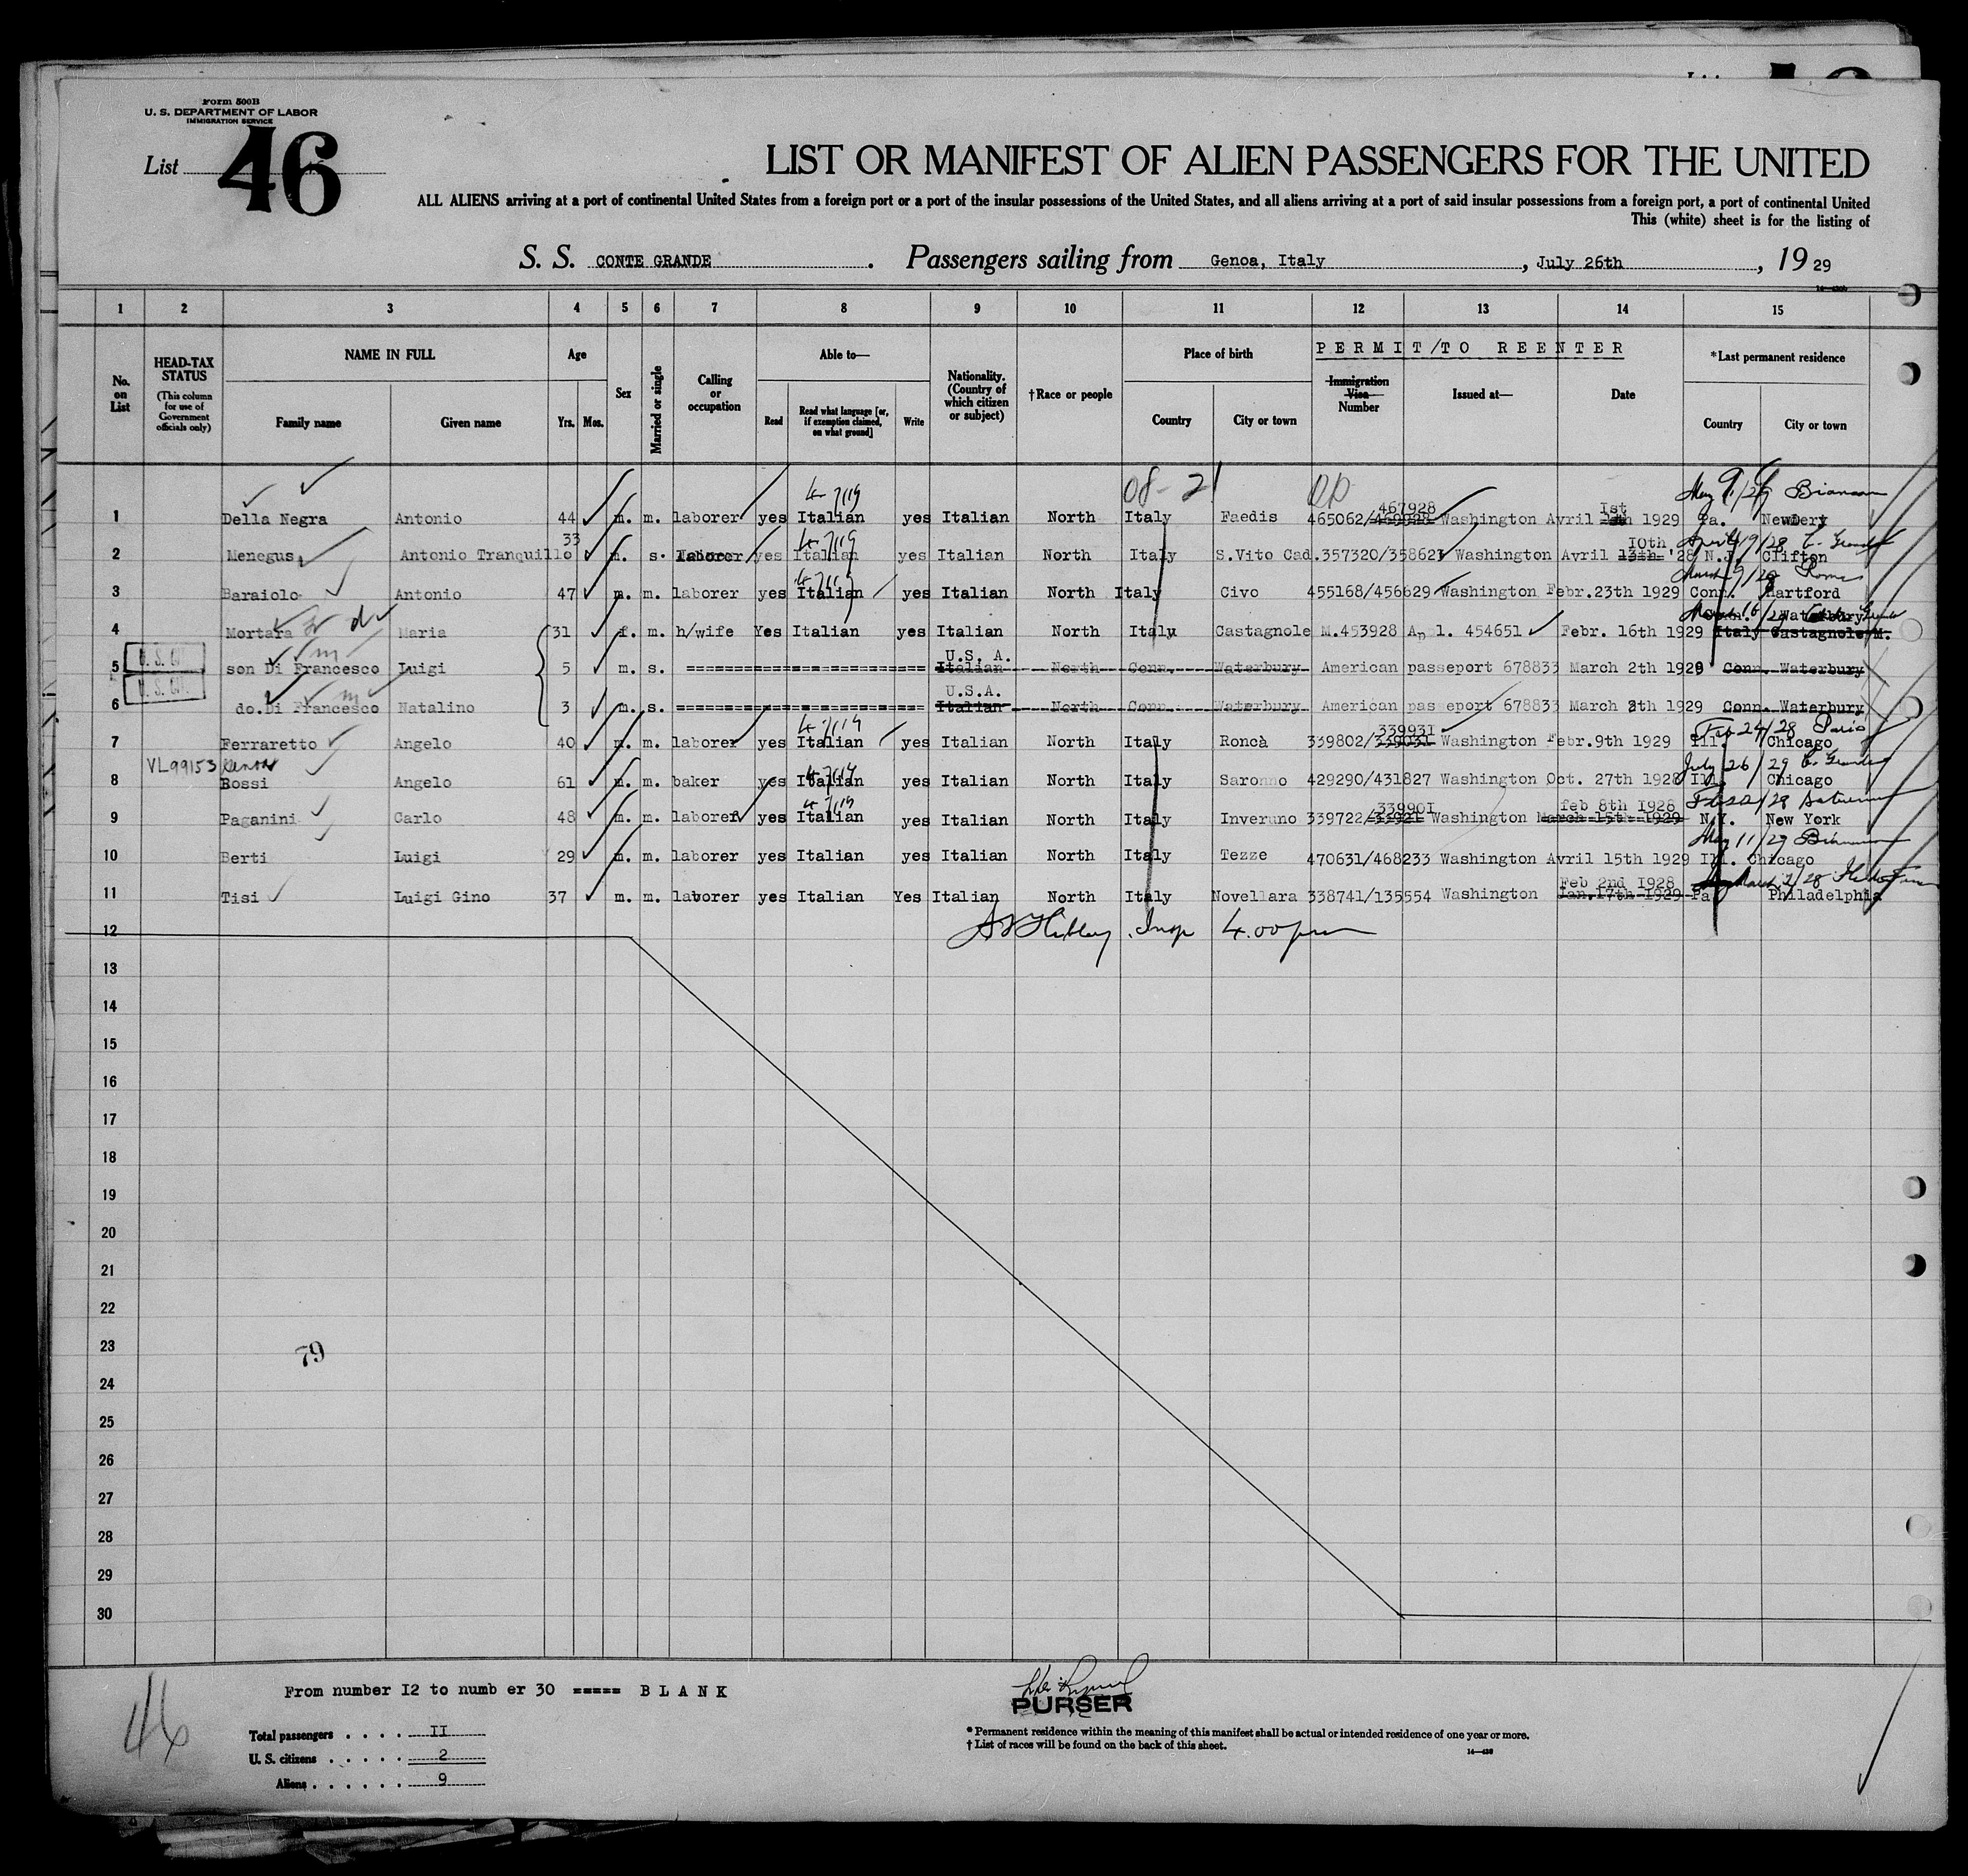 Form 500B
U. S. DEPARTMENT OF LABOR
IMMIGRATION SERVICE
List 46
LIST OR MANIFEST OF ALIEN PASSENGERS FOR THE UNITED
ALL ALIENS arriving at a port of continental United States from a foreign port or a port of the insular possessions of the United States, and all aliens arriving at a port of said insular possessions from a foreign port, a port of continental United
This (white) sheet is for the listing of
S. S. CONTE GRANDE. Passengers sailing from Genoa, Italy, July 26th, 1929
1 2 3 4 5 6 7 8 9 10 11 12 13 14 15
No. on List
HEAD-TAX STATUS
(This column for use of Government officials only)
NAME IN FULL
Family name Given name
Age
Yrs. Mos.
Sex
Married or single
Calling or occupation
Able to—
Read
Read what language [or, if exemption claimed, on what ground]
Write
Nationality. (Country of which citizen or subject)
†Race or people
Place of birth
Country City or town
PERMIT/TO REENTER
Immigration Visa Number
Issued at—
Date
*Last permanent residence
Country City or town
08-21
1 Della Negra Antonio 44 m. m. laborer yes Italian yes Italian North Italy Faedis 465062/469928 467928 Washington Avril Ist 1929 Pa. NewDery
2 Menegus Antonio Tranquillo 33 m. s. laborer yes Italian yes Italian North Italy S.Vito Cad. 357320/358621 Washington Avril 13th 10th '28 N.J. Clifton
3 Baraiolo Antonio 47 m. m. laborer yes Italian yes Italian North Italy Civo 455168/456629 Washington Febr.23th 1929 Conn. Hartford
4 Mortara Maria 31 f. m. h/wife Yes Italian yes Italian North Italy Castagnole M.453928 Apl. 454651 Febr. 16th 1929 Italy Castagnole M. Waterbury
5 son Di Francesco Luigi 5 m. s. Italian U.S.A. North Conn. Waterbury American passeport 678833 March 2th 1929 Conn. Waterbury
6 do. Di Francesco Natalino 3 m. s. Italian U.S.A. North Conn. Waterbury American pas eport 678833 March 2th 1929 Conn. Waterbury
7 Ferraretto Angelo 40 m. m. laborer yes Italian yes Italian North Italy Roncà 339802/339031 339931 Washington Febr.9th 1929 Ill. Chicago
Feb 24/28 Paris
VL99153
July 26/29
8 Rossi Angelo 61 m. m. baker yes Italian yes Italian North Italy Saronno 429290/431827 Washington Oct. 27th 1928 Ill. Chicago
9 Paganini Carlo 48 m. m. laborer yes Italian yes Italian North Italy Inveruno 339722/33921 339901 Washington March 15th 1929 feb 8th 1928 N.Y. New York
May 11/29
10 Berti Luigi 29 m. m. laborer yes Italian yes Italian North Italy Tezze 470631/468233 Washington Avril 15th 1929 Ill. Chicago
11 Tisi Luigi Gino 37 m. m. laborer yes Italian Yes Italian North Italy Novellara 338741/135554 Washington Jan.17th 1929 Feb 2nd 1928 Pa Philadelphia
12 Insp 4.00 pm
13
14
15
16
17
18
19
20
21
22
23
24
25
26
27
28
29
30
79
46
From number I2 to numb er 30 ===== B L A N K
PURSER
Total passengers . . . . II
U. S. citizens . . . . . 2
Aliens . . . . . . 9
* Permanent residence within the meaning of this manifest shall be actual or intended residence of one year or more.
† List of races will be found on the back of this sheet.